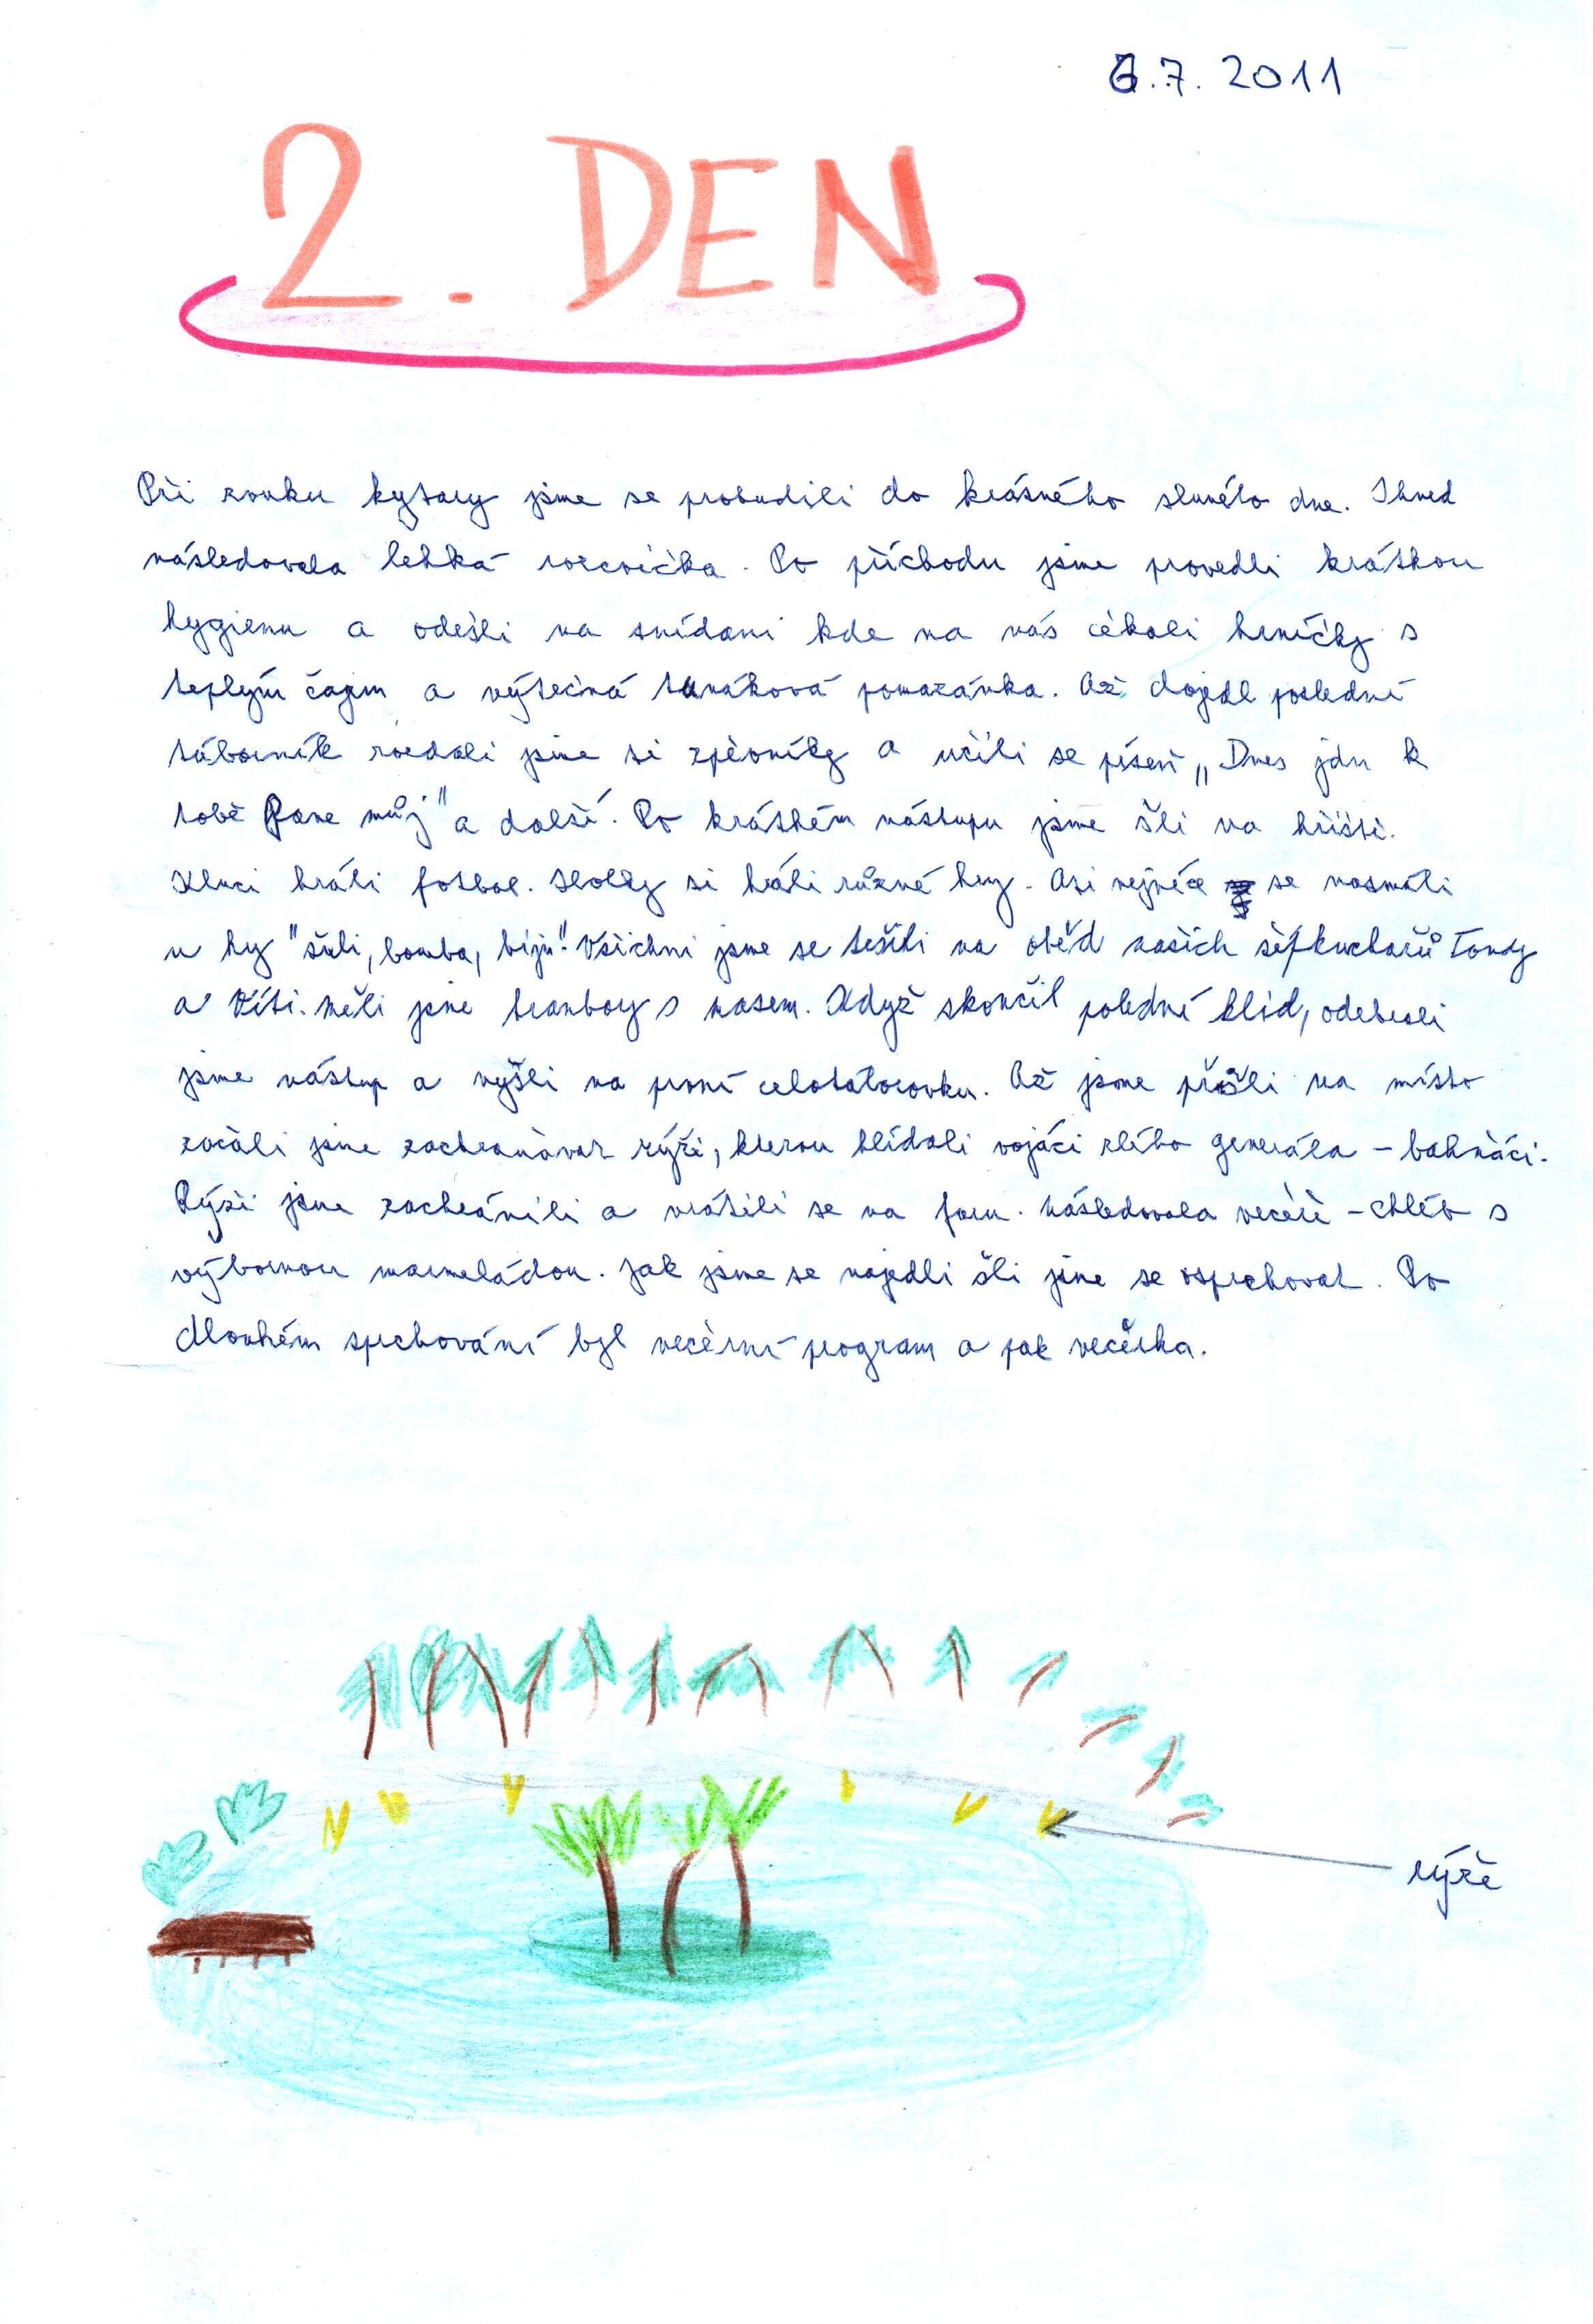 6.7. 2011
2. DEN
Při zvuku kytary jsme se probudili do krásného slunéto dne. Ihned
následovala lehká rozcvička. Po příchodu jsme provedli krátkou
hygienu a odešli na snídani kde na nás čékali hrníčky s
teplým čajem a výtečná tunáková pomazánka. Až dojedl poslední
táborník rozdali jsme si zpěvníky a učili se píseň „Dnes jdu k
tobě Pane můj" a další. Po krátkém nástupu jsme šli na hřiště.
Kluci hráli fotbal. Holky si hráli různé hry. Asi nejvíce se nasmáli
u hry "šuli, bomba, biju". Všichni jsme se těšili na oběd našich šéfkuchařů Tondy
a Víti. Měli jsme brambory s masem. Když skončil polední klid, odebrali
jsme nástup a vyšli na první celotáborovku. Až jsme přišli na místo
začali jsme zachraňovar rýži, kterou hlídali vojáci zlého generála - bahňáci.
Rýži jsme zachránili a vrátili se na faru. Následovala večeře - chléb s
výbornou marmeládou. Jak jsme se najedli šli jsme se osprchovat. Po
dlouhém sprchování byl večerní program a pak večerka.
rýže